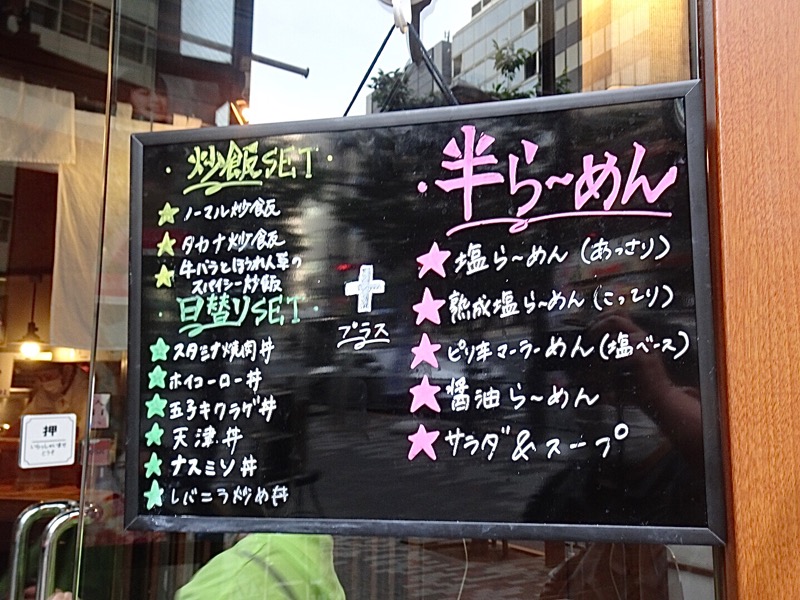 ・炒飯SET・
★ノーマル炒飯
★タカナ炒飯
★牛バラとほうれん草の
スパイシー炒飯
日替りSET・
★スタミナ焼肉丼
★ホイコーロー丼
★玉子キクラゲ丼
★天津丼
★ナスミソ丼
★レバニラ炒め丼
+
プラス
・半ら〜めん
★塩ら〜めん(あっさり)
★熟成塩ら〜めん(こってり)
★ピリ辛マーラーめん(塩ベース)
★醤油ら〜めん
★サラダ&スープ
押
いらっしゃいませ
どうぞ